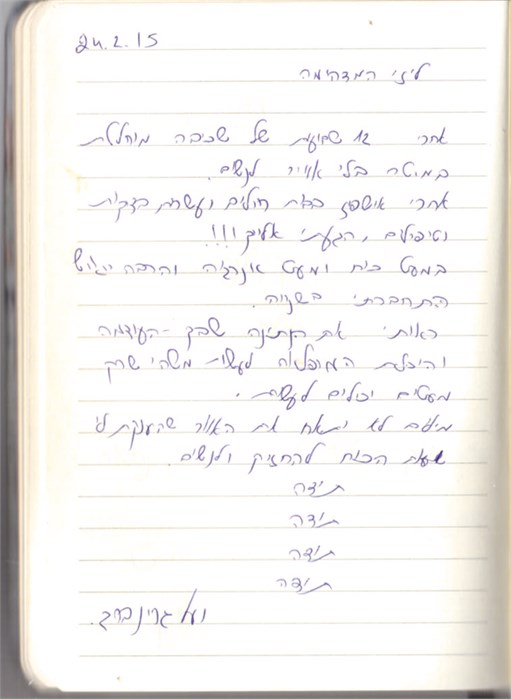 24.2.15
ליזי המדהימה
אחרי 12 שבועות של שכיבה מוחלטת
במיטה בלי אוויר לנשום.
אחרי אישפוז בבית חולים ועשרות בדיקות
וטיפולים, הגעתי אליך!!!
במעט כוח ומעט אנרגיה והרבה ייאוש
התחברתי בשנייה.
ראיתי את הנתינה שבך - העוצמה
והיכולת המופלאה לעשות משהי שרק
מעטים יכולים לעשות.
מילים לא יתארו את האוויר שהענקת לי
ואת הכוח להחזיק ולנשום.
תודה
תודה
תודה
תודה
גרינברג.